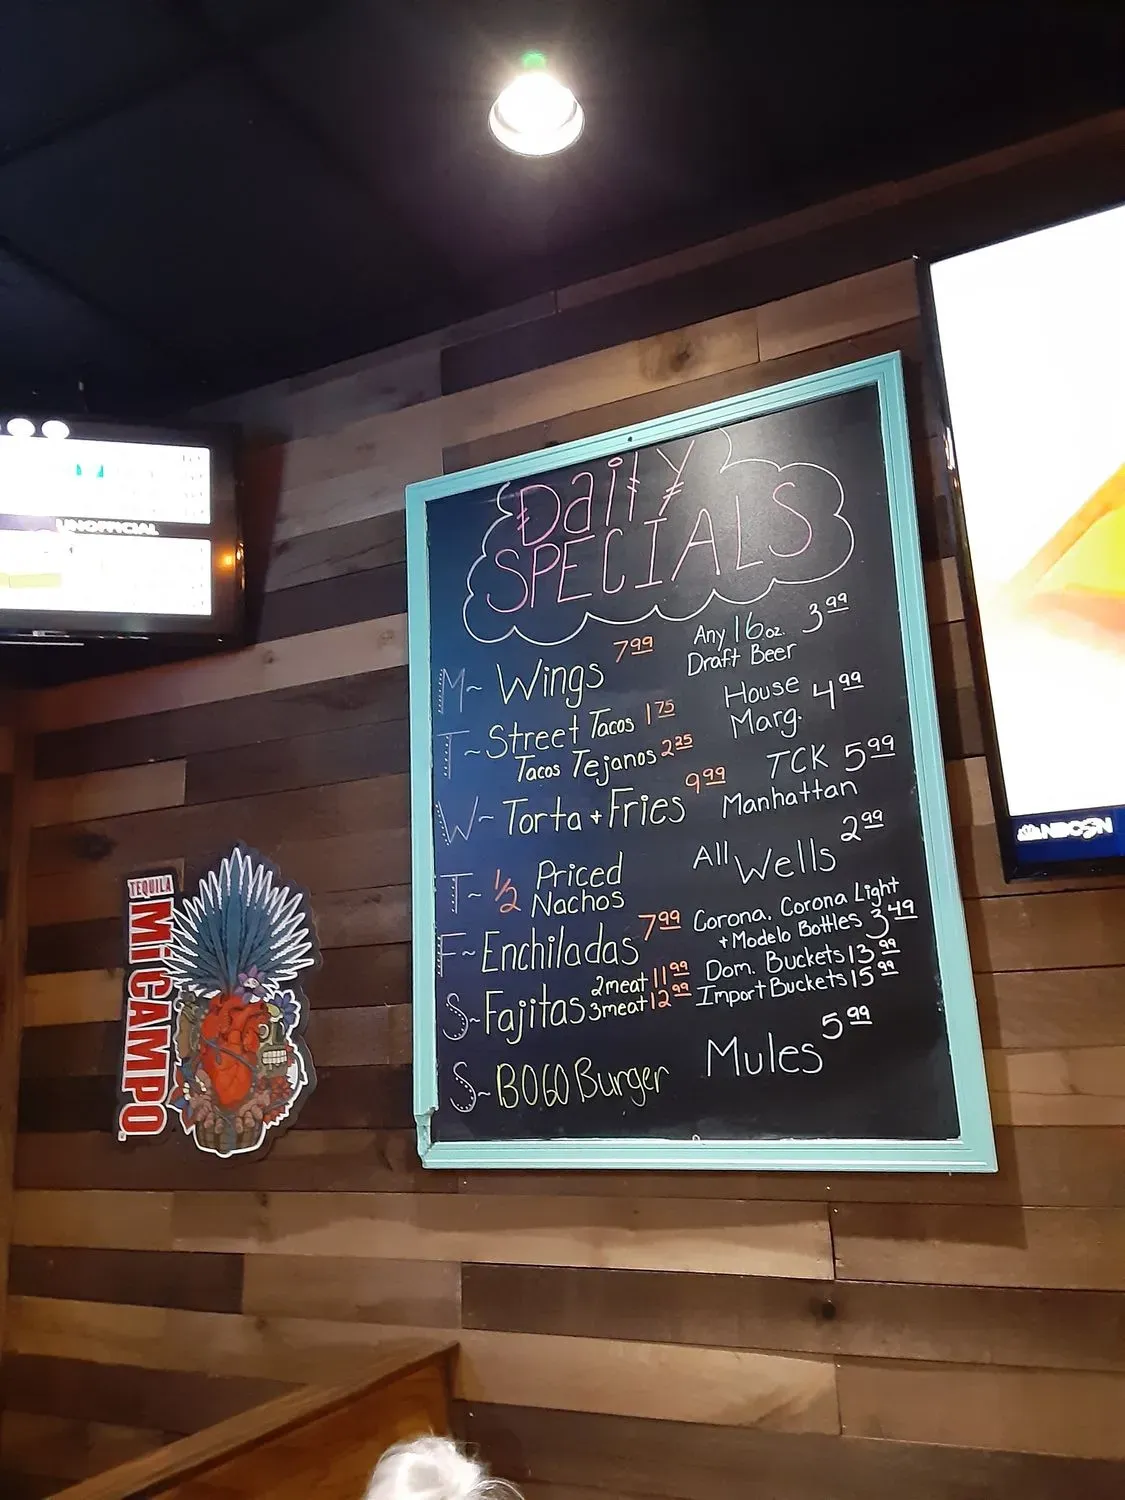 Daily
SPECIALS
M~ Wings 7.99 Any 16 oz. Draft Beer 3.99
T~ Street Tacos 1.75 House Marg. 4.99
Tacos Tejanos 2.25
W~ Torta + Fries 9.99 TCK Manhattan 5.99
T~ 1/2 Priced Nachos All Wells 2.99
F~ Enchiladas 7.99 Corona, Corona Light
+ Modelo Bottles 3.49
S~ Fajitas 2meat 11.99 Dom. Buckets 13.99
3meat 12.99 Import Buckets 15.99
S~ BOGO Burger Mules 5.99
UNOFFICIAL
TEQUILA
MiCAMPO
NBCSN